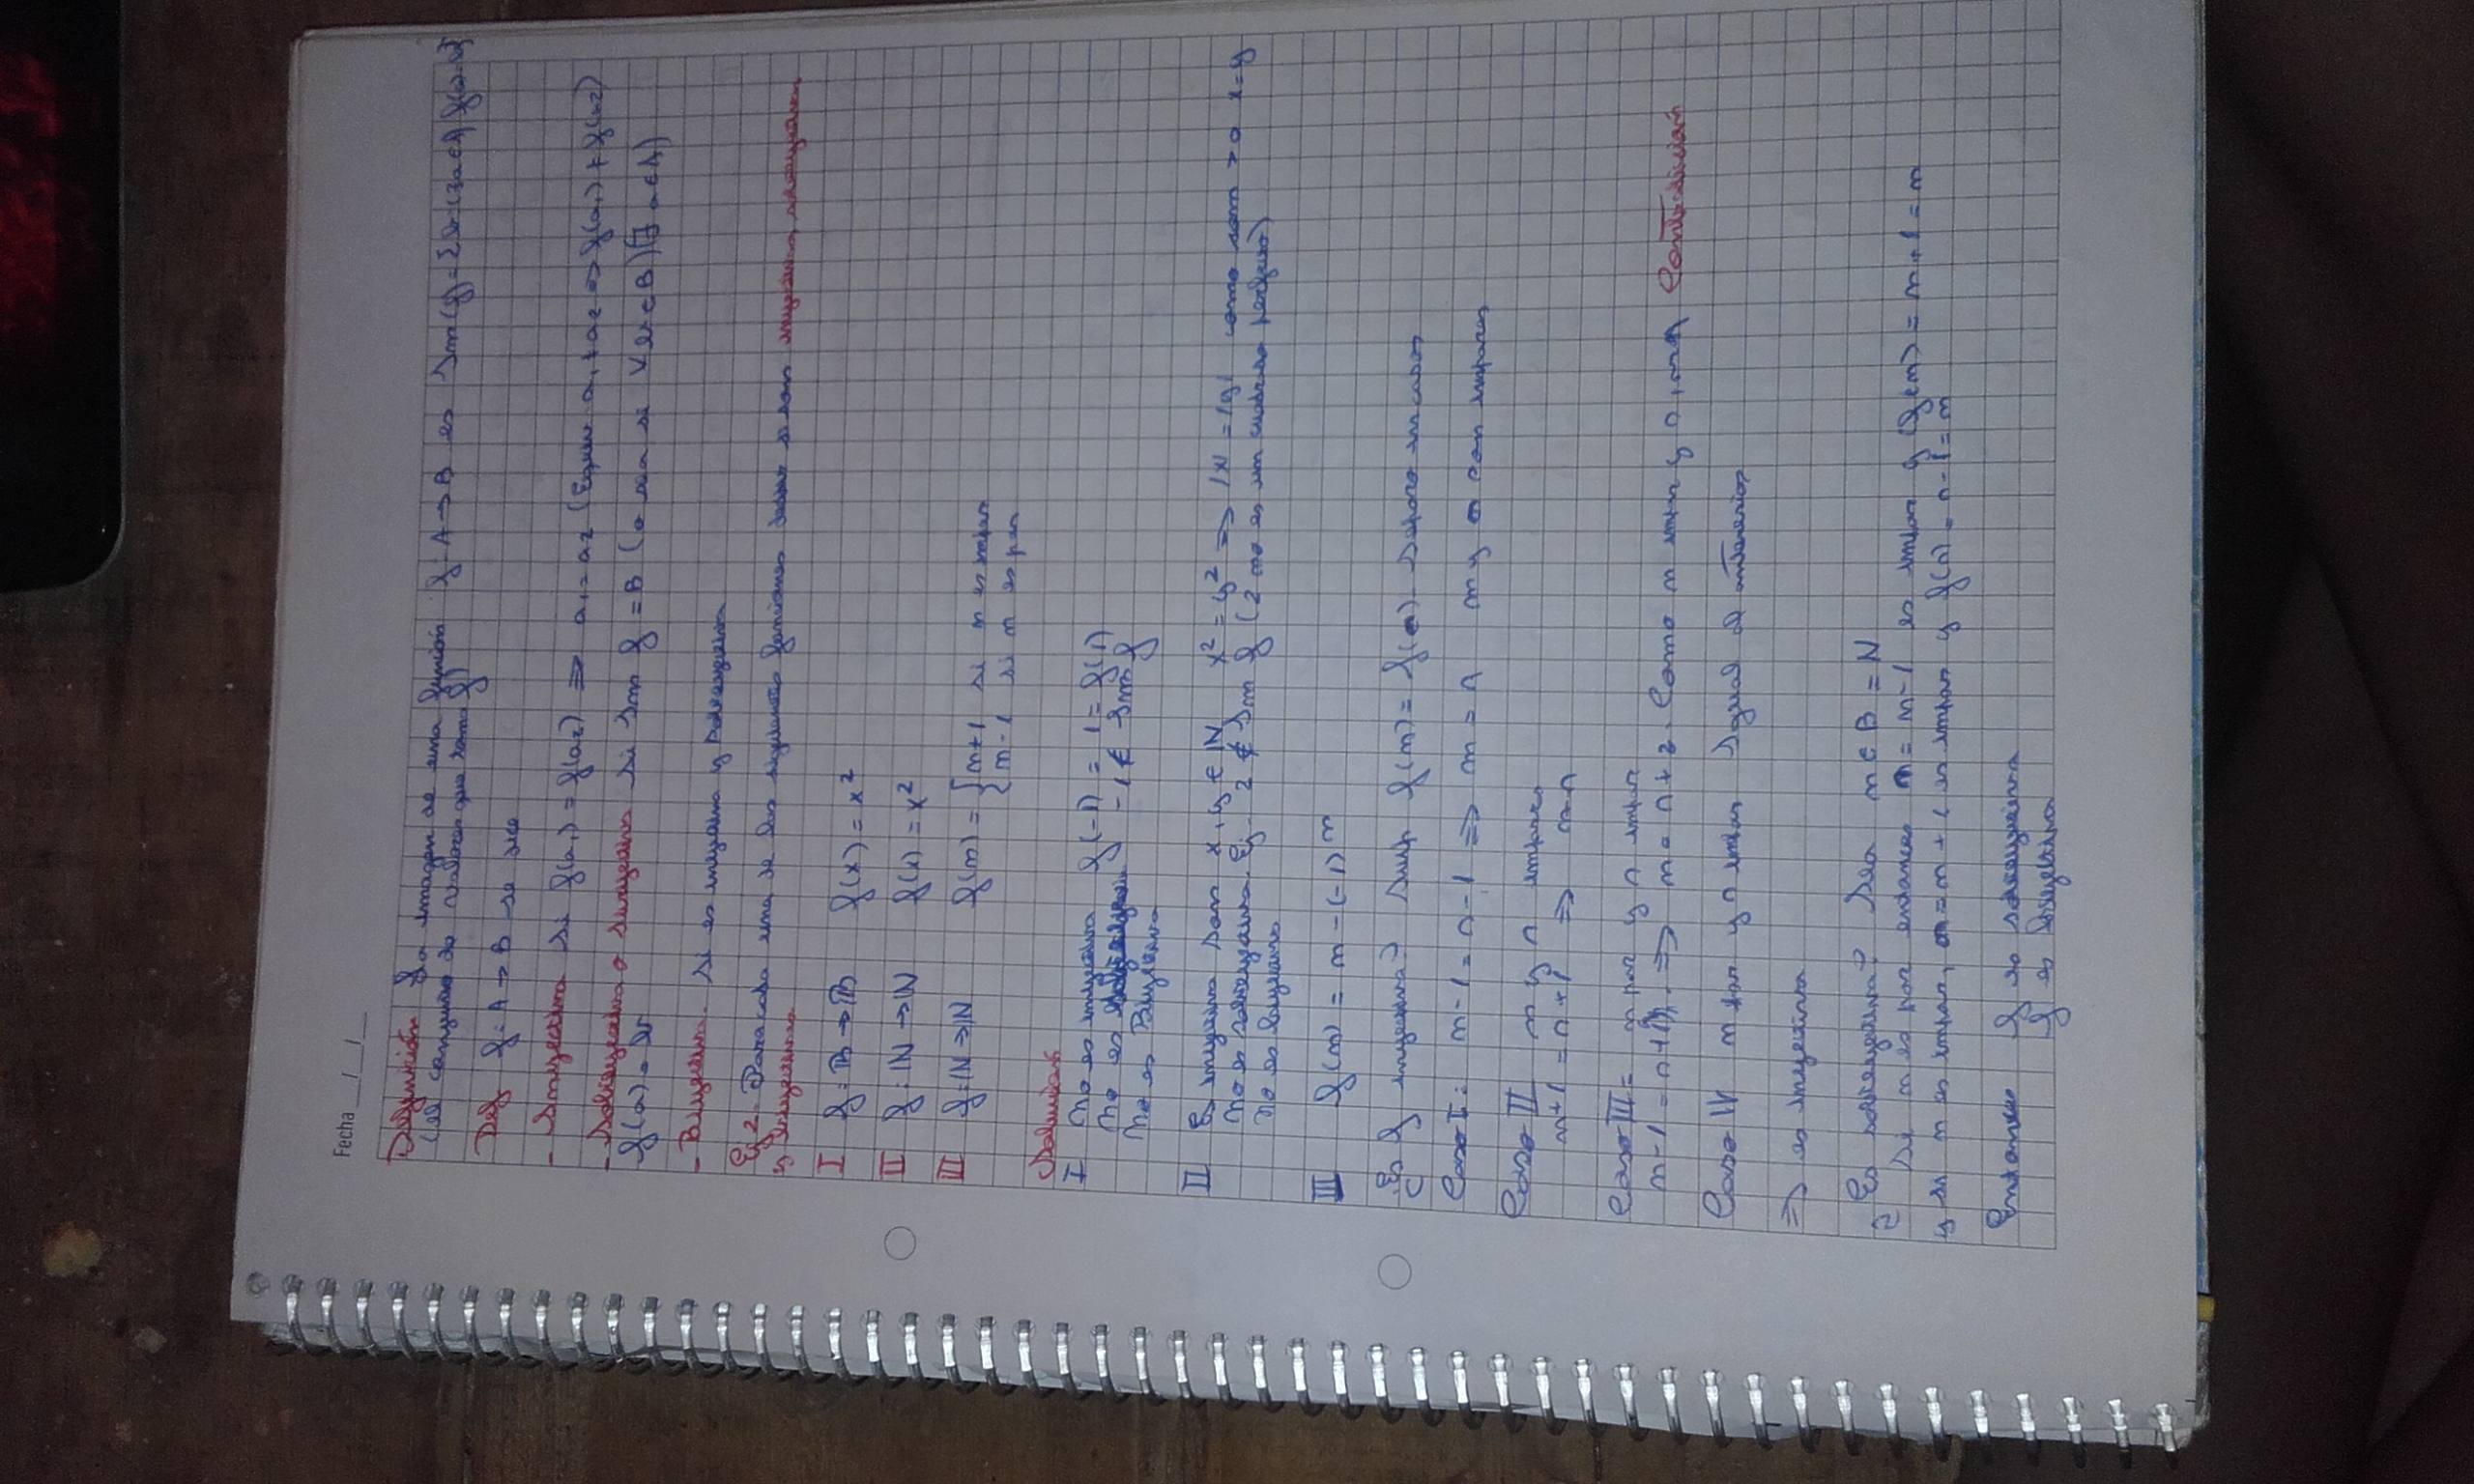 Fecha __/__/__
Definición La imagen de una función f: A → B es Im(f) = {b: (∃a∈A) f(a)=b}
(el conjunto de valores que toma f)
Def f: A → B se dice
- Inyectiva si f(a₁) = f(a₂) ⇒ a₁ = a₂ (Equiv a₁ ≠ a₂ ⇒ f(a₁) ≠ f(a₂))
- Sobreyectiva o suryectiva si Im f = B (o sea si ∀ b ∈ B)(∃ a∈A)
f(a) = b
- Biyectiva. Si es inyectiva y sobreyectiva
Ej 2. Para cada una de las siguientes funciones si son inyectivas, sobreyectivas
y biyectivas
I f: R → R f(x) = x²
II f: IN → IN f(x) = x²
III f: IN → IN f(n) = { n+1 si n es impar
{ n-1 si n es par
Solución
I No es inyectiva f(-1) = 1 = f(1)
No es -1 ∉ Im f
No es Biyectiva
II Es inyectiva Son x, y ∈ IN x² = y² ⇒ |x| = |y| como son > 0 x=y
No es sobreyectiva. Ej. 2 ∉ Im f (2 no es un cuadrado perfecto)
No es biyectiva
III f(n) = n - (-1)ⁿ
¿Es f inyectiva? Sup f(m) = f(n). Separo en casos
Caso I: m-1 = n-1 ⇒ m = n m y n son impares
Caso II m y n impares
m+1 = n+1 ⇒ m=n
Caso III = m par y n impar
m-1 = n+1 ⇒ m = n+2. Como m impar y n, Contradicción
Caso IV m par y n impar Igual al anterior
⇒ es inyectiva
¿Es sobreyectiva? Sea m ∈ B = N
Si m es par entonces n = m-1 es impar y f(n) = n+1 = m
y si m es impar, n = m+1 es impar y f(n) = n-1 = m
Entonces f es sobreyectiva
f es biyectiva